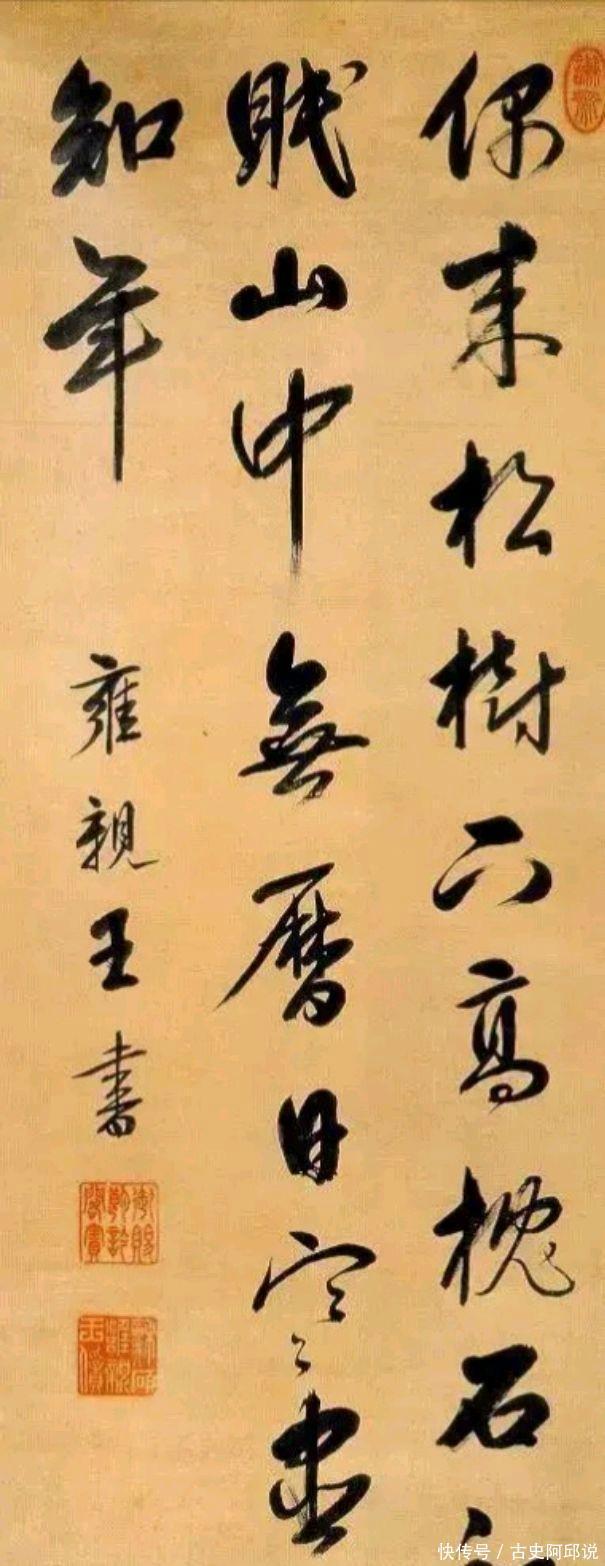 偶来松樹下高枕石
眠山中無曆日寒盡
知年
雍親王書
御賜朗吟閣寶
快传号 / 古史阿邱说